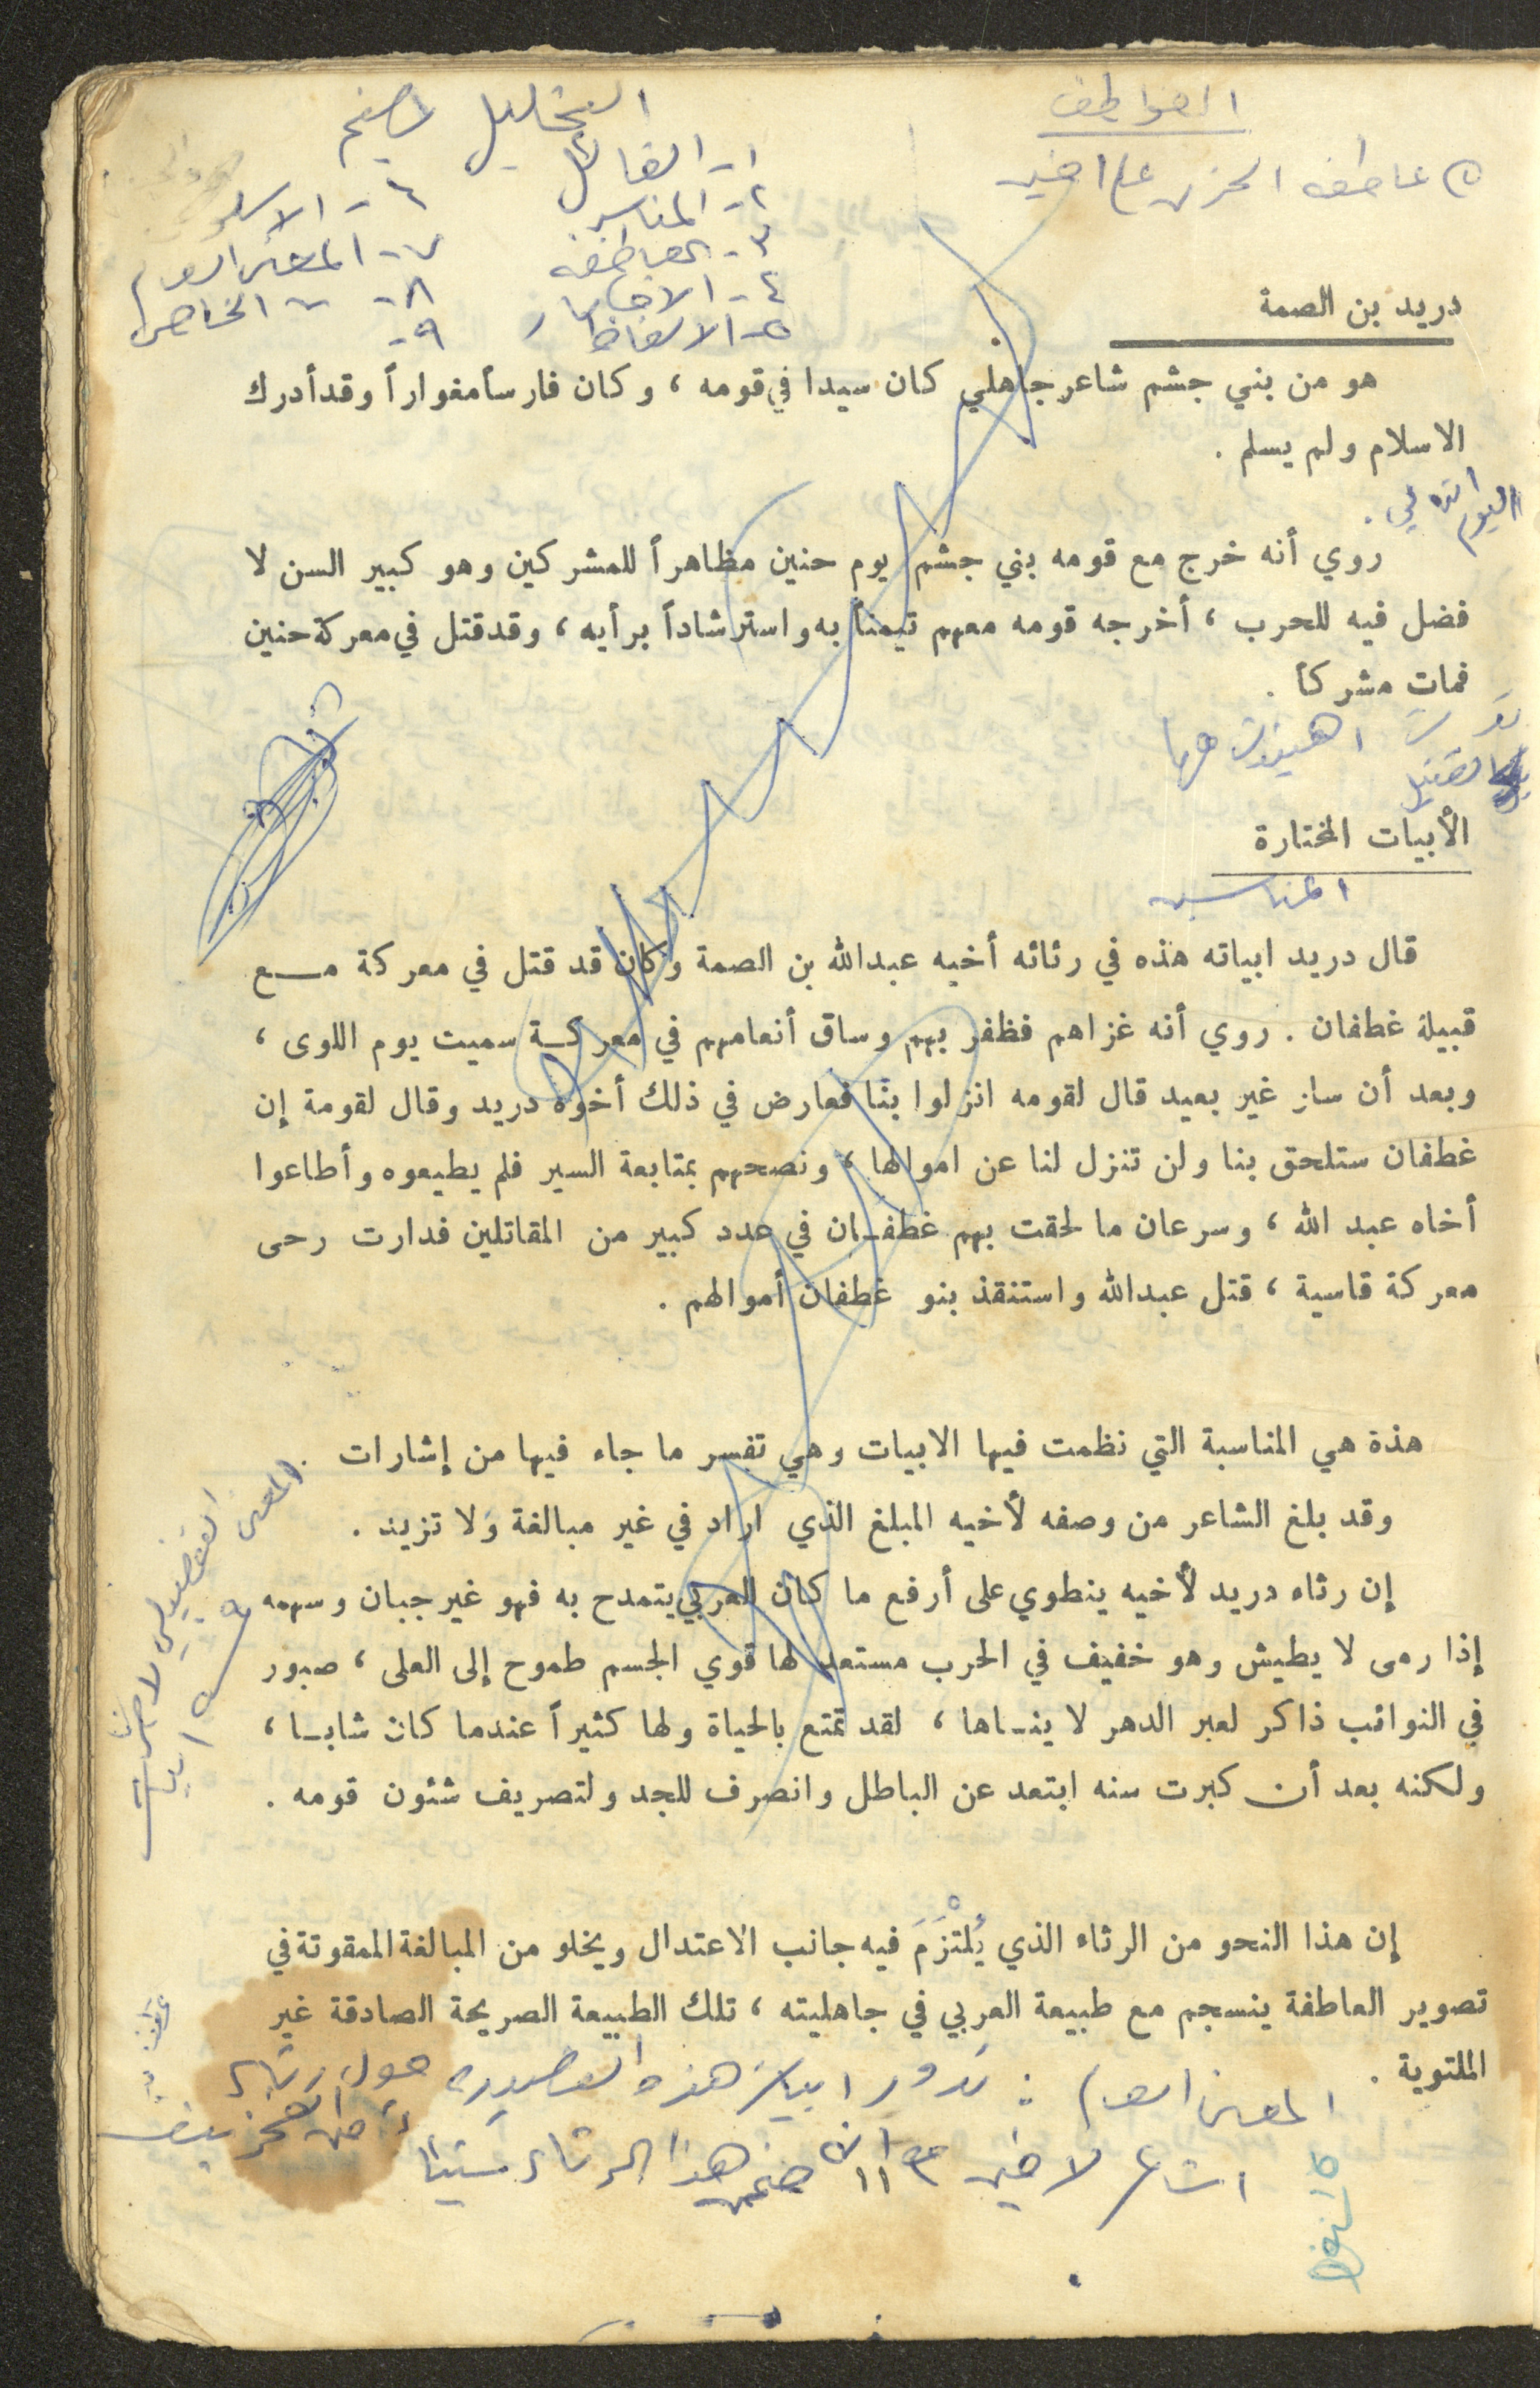 العواطف
عاطفة الحزن على اخيه
التحليل
١- القائل
٢- المناسبة
٣- العاطفة
٤- الافكار
٥- الالفاظ
٦- الاسلوب
٧- المعنى العام
٨- = الخاص
٩-
دريد بن الصمة
هو من بني جشم شاعر جاهلي كان سيدا في قومه ، وكان فارساً مغواراً وقد أدرك
الاسلام ولم يسلم .
اليوم
روي أنه خرج مع قومه بني جشم يوم حنين مظاهراً للمشركين وهو كبير السن لا
فضل فيه للحرب ، أخرجه قومه معهم تيمناً به واسترشاداً برأيه ، وقد قتل في معركة حنين
فمات مشركاً .
الأبيات المختارة
المناسبه
قال دريد ابياته هذه في رثائه أخيه عبدالله بن الصمة وكان قد قتل في معركة مــع
قبيلة غطفان . روي أنه غزاهم فظفر بهم وساق أنعامهم في معركــة سميت يوم اللوى ،
وبعد أن سار غير بعيد قال لقومه انزلوا بنا فعارض في ذلك أخوه دريد وقال لقومة إن
غطفان ستلحق بنا ولن تنزل لنا عن اموالها ، ونصحهم بمتابعة السير فلم يطيعوه وأطاعوا
أخاه عبد الله ، وسرعان ما لحقت بهم غطفــان في عدد كبير من المقاتلين فدارت رحى
معركة قاسية ، قتل عبدالله واستنقذ بنو غطفان أموالهم .
هذة هي المناسبة التي نظمت فيها الابيات وهي تفسر ما جاء فيها من إشارات .
وقد بلغ الشاعر من وصفه لأخيه المبلغ الذي اراد في غير مبالغة ولا تزيد .
المعنى التفصيلي
إن رثاء دريد لأخيه ينطوي على أرفع ما كان العربي يتمدح به فهو غير جبان وسهمه
إذا رمى لا يطيش وهو خفيف في الحرب مستعد لها قوي الجسم طموح إلى العلى ، صبور
في النوائب ذاكر لعبر الدهر لا ينــاها ، لقد تمتع بالحياة ولها كثيراً عندما كان شابــا ،
ولكنه بعد أن كبرت سنه ابتعد عن الباطل وانصرف للجد ولتصريف شئون قومه .
إن هذا النحو من الرثاء الذي يُلْتَزَمَ فيه جانب الاعتدال ويخلو من المبالغة الممقوتة في
تصوير العاطفة ينسجم مع طبيعة العربي في جاهليته ، تلك الطبيعة الصريحة الصادقة غير
الملتوية .
المعنى العام : تدور ابيات هذه القصيدة حول رثاء
الشاعر لاخيه ضمن هذا الرثاء